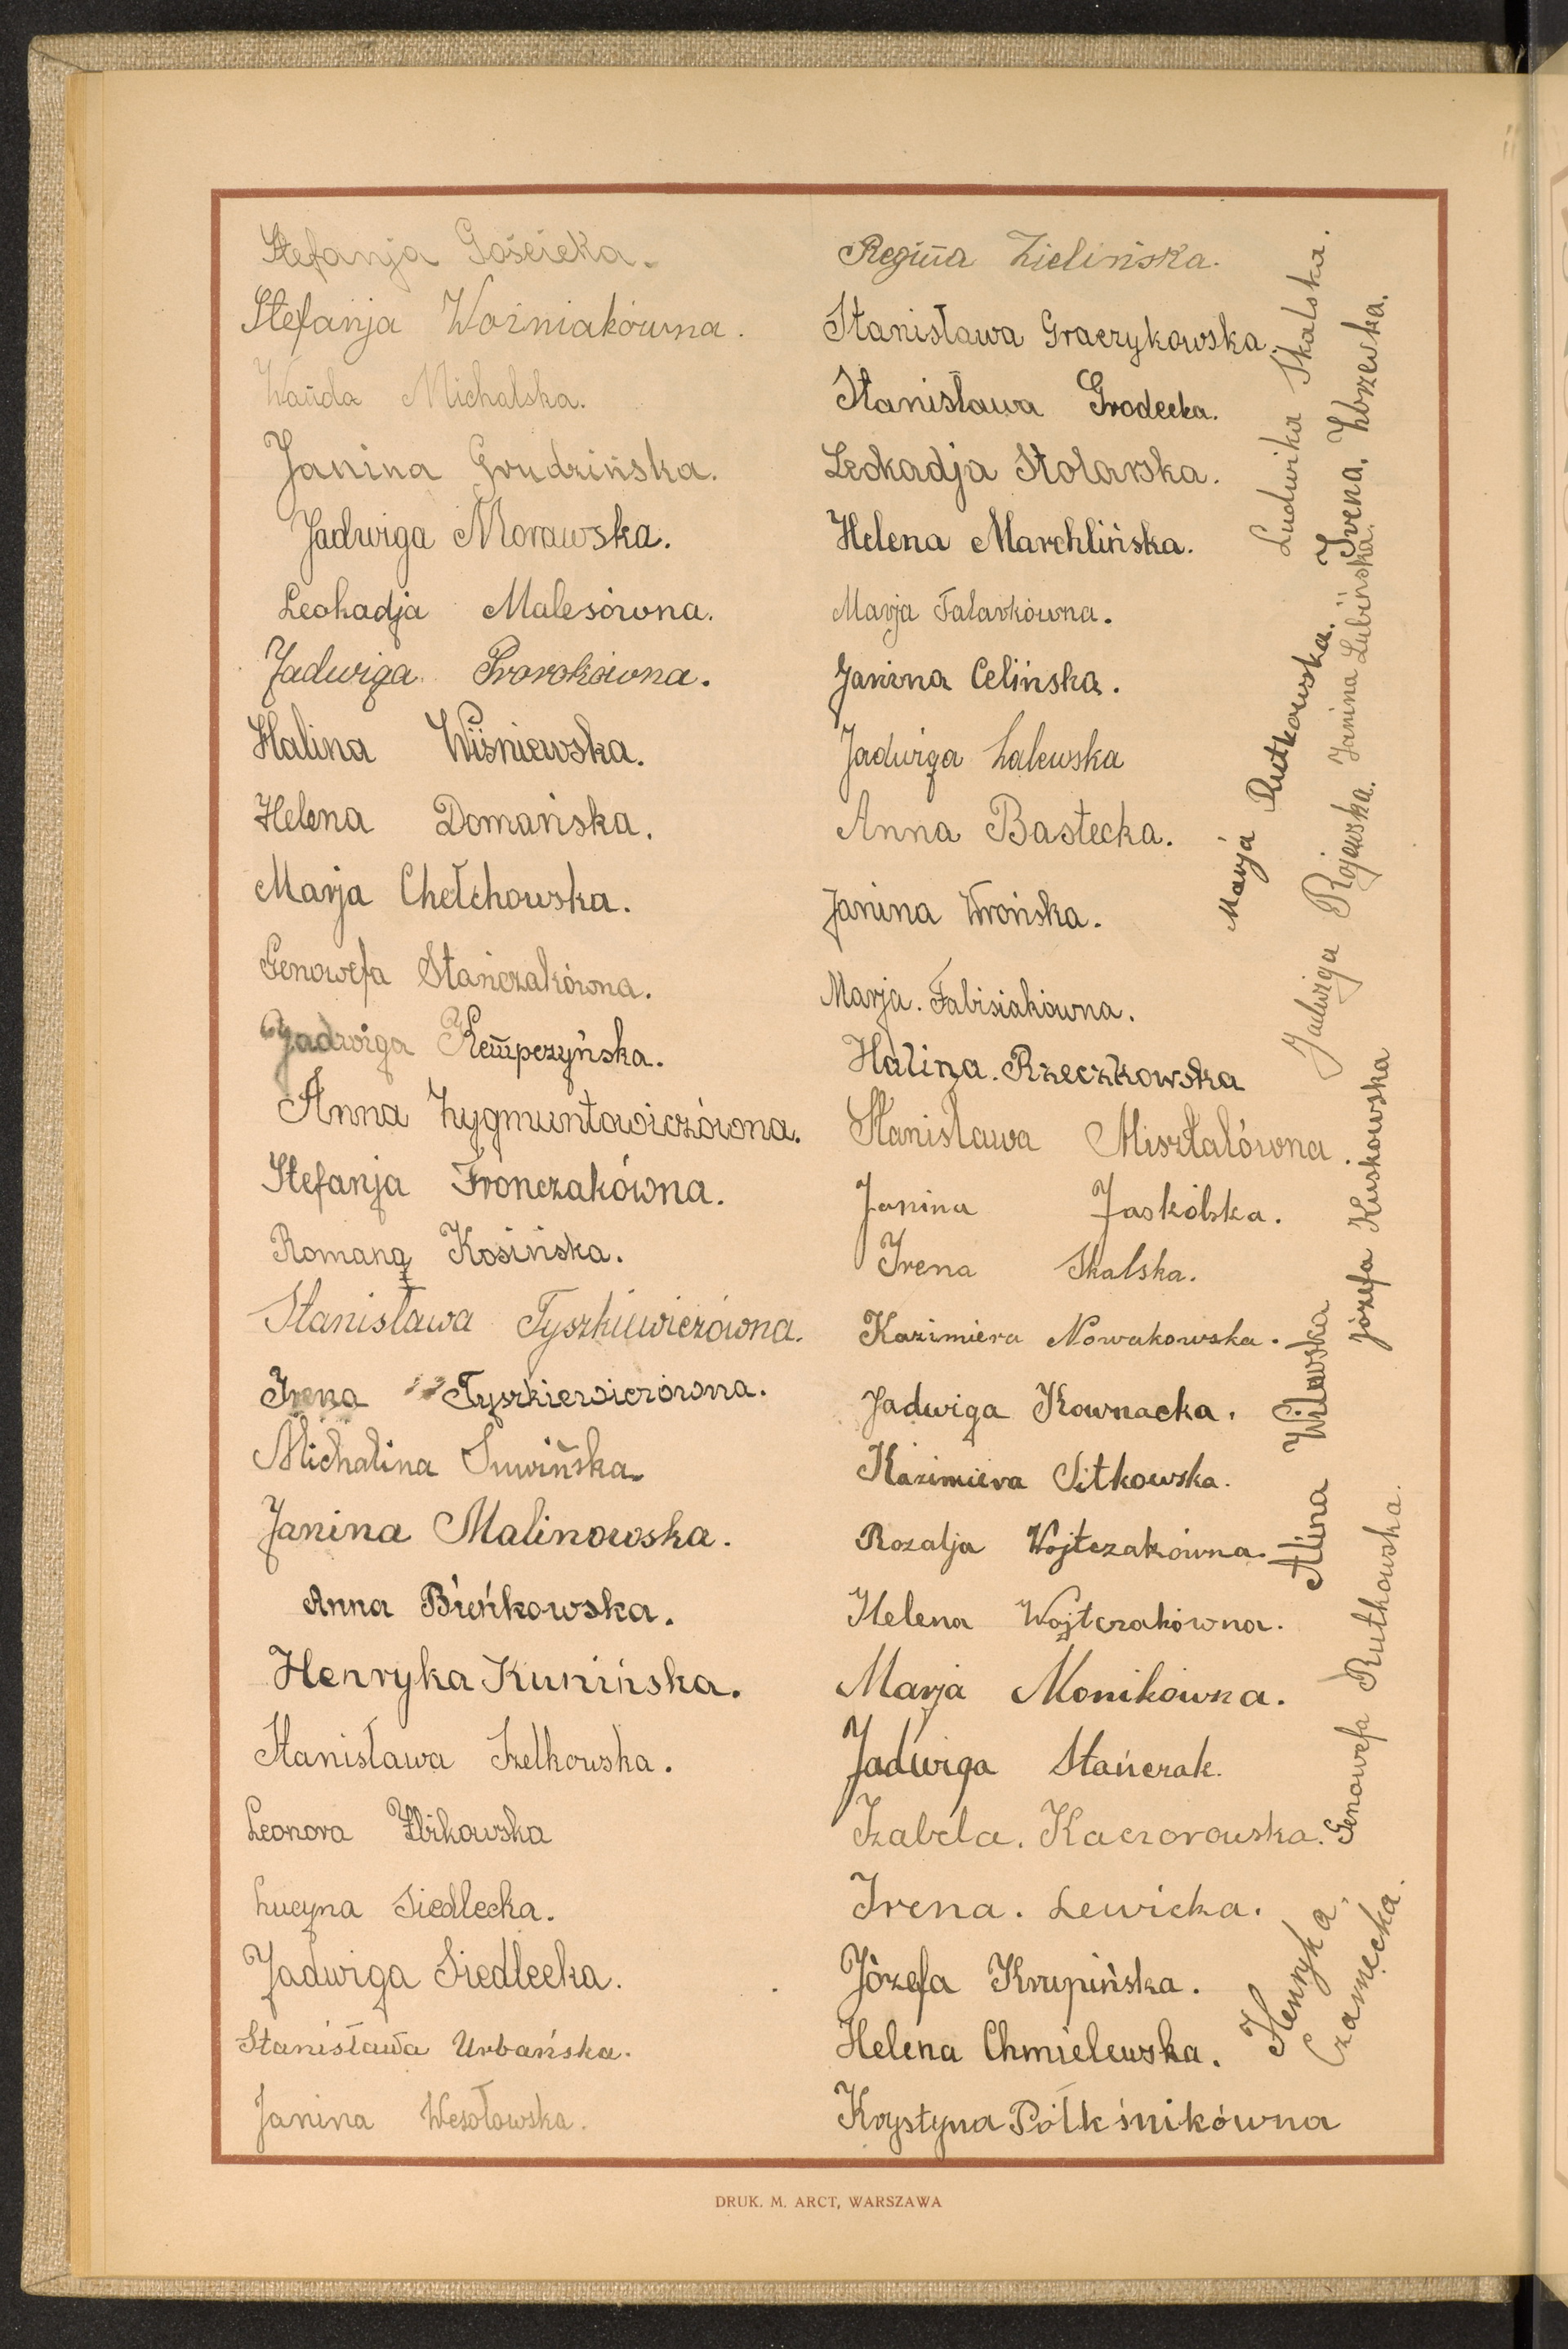 Stefanja Gościcka.
Stefanja Woźniakówna.
Wanda Michalska.
Janina Grudzińska.
Jadwiga Morawska.
Leokadja Malesówna.
Jadwiga Prorokówna.
Halina Wiśniewska.
Helena Domańska.
Marja Chełchowska.
Genowefa Stańczakówna.
Jadwiga Kempczyńska.
Anna Zygmuntowiczówna.
Stefanja Fronczakówna.
Romana Kosińska.
Stanisława Tyszkiewiczówna.
Irena Tyszkiewiczówna.
Michalina Suwińska.
Janina Malinowska.
Anna Bieńkowska.
Henryka Kunińska.
Stanisława Szelkowska.
Leonora Zbikowska
Lucyna Siedlecka.
Jadwiga Siedlecka.
Stanisława Urbańska.
Janina Wesołowska.
Regina Zielińska.
Stanisława Graczykowska.
Stanisława Grodecka.
Leokadja Stolarska.
Helena Marchlińska.
Marja Falarkówna.
Janina Celińska.
Jadwiga Zalewska
Anna Bastecka.
Janina Wrońska.
Marja. Fabisiakówna.
Halina. Rzeczkowska
Stanisława Misztalówna.
Janina Jaskólska.
Irena Skalska.
Kazimiera Nowakowska.
Jadwiga Kownacka.
Kazimiera Sitkowska.
Rozalja Wojtczakówna.
Helena Wojtczakówna.
Marja Monikówna.
Jadwiga Stańczak.
Izabela. Kaczorowska.
Irena. Lewicka.
Józefa Krupińska.
Helena Chmielewska.
Krystyna Półkśnikówna
Ludwika Skalska.
Irena. Zbrzeska.
Marja Rutkowska.
Janina Lubińska.
Jadwiga Rojewska.
Józefa Kuskowska
Alina Witowska
Genowefa Rutkowska.
Henryka
Czarnecka.
DRUK. M. ARCT, WARSZAWA